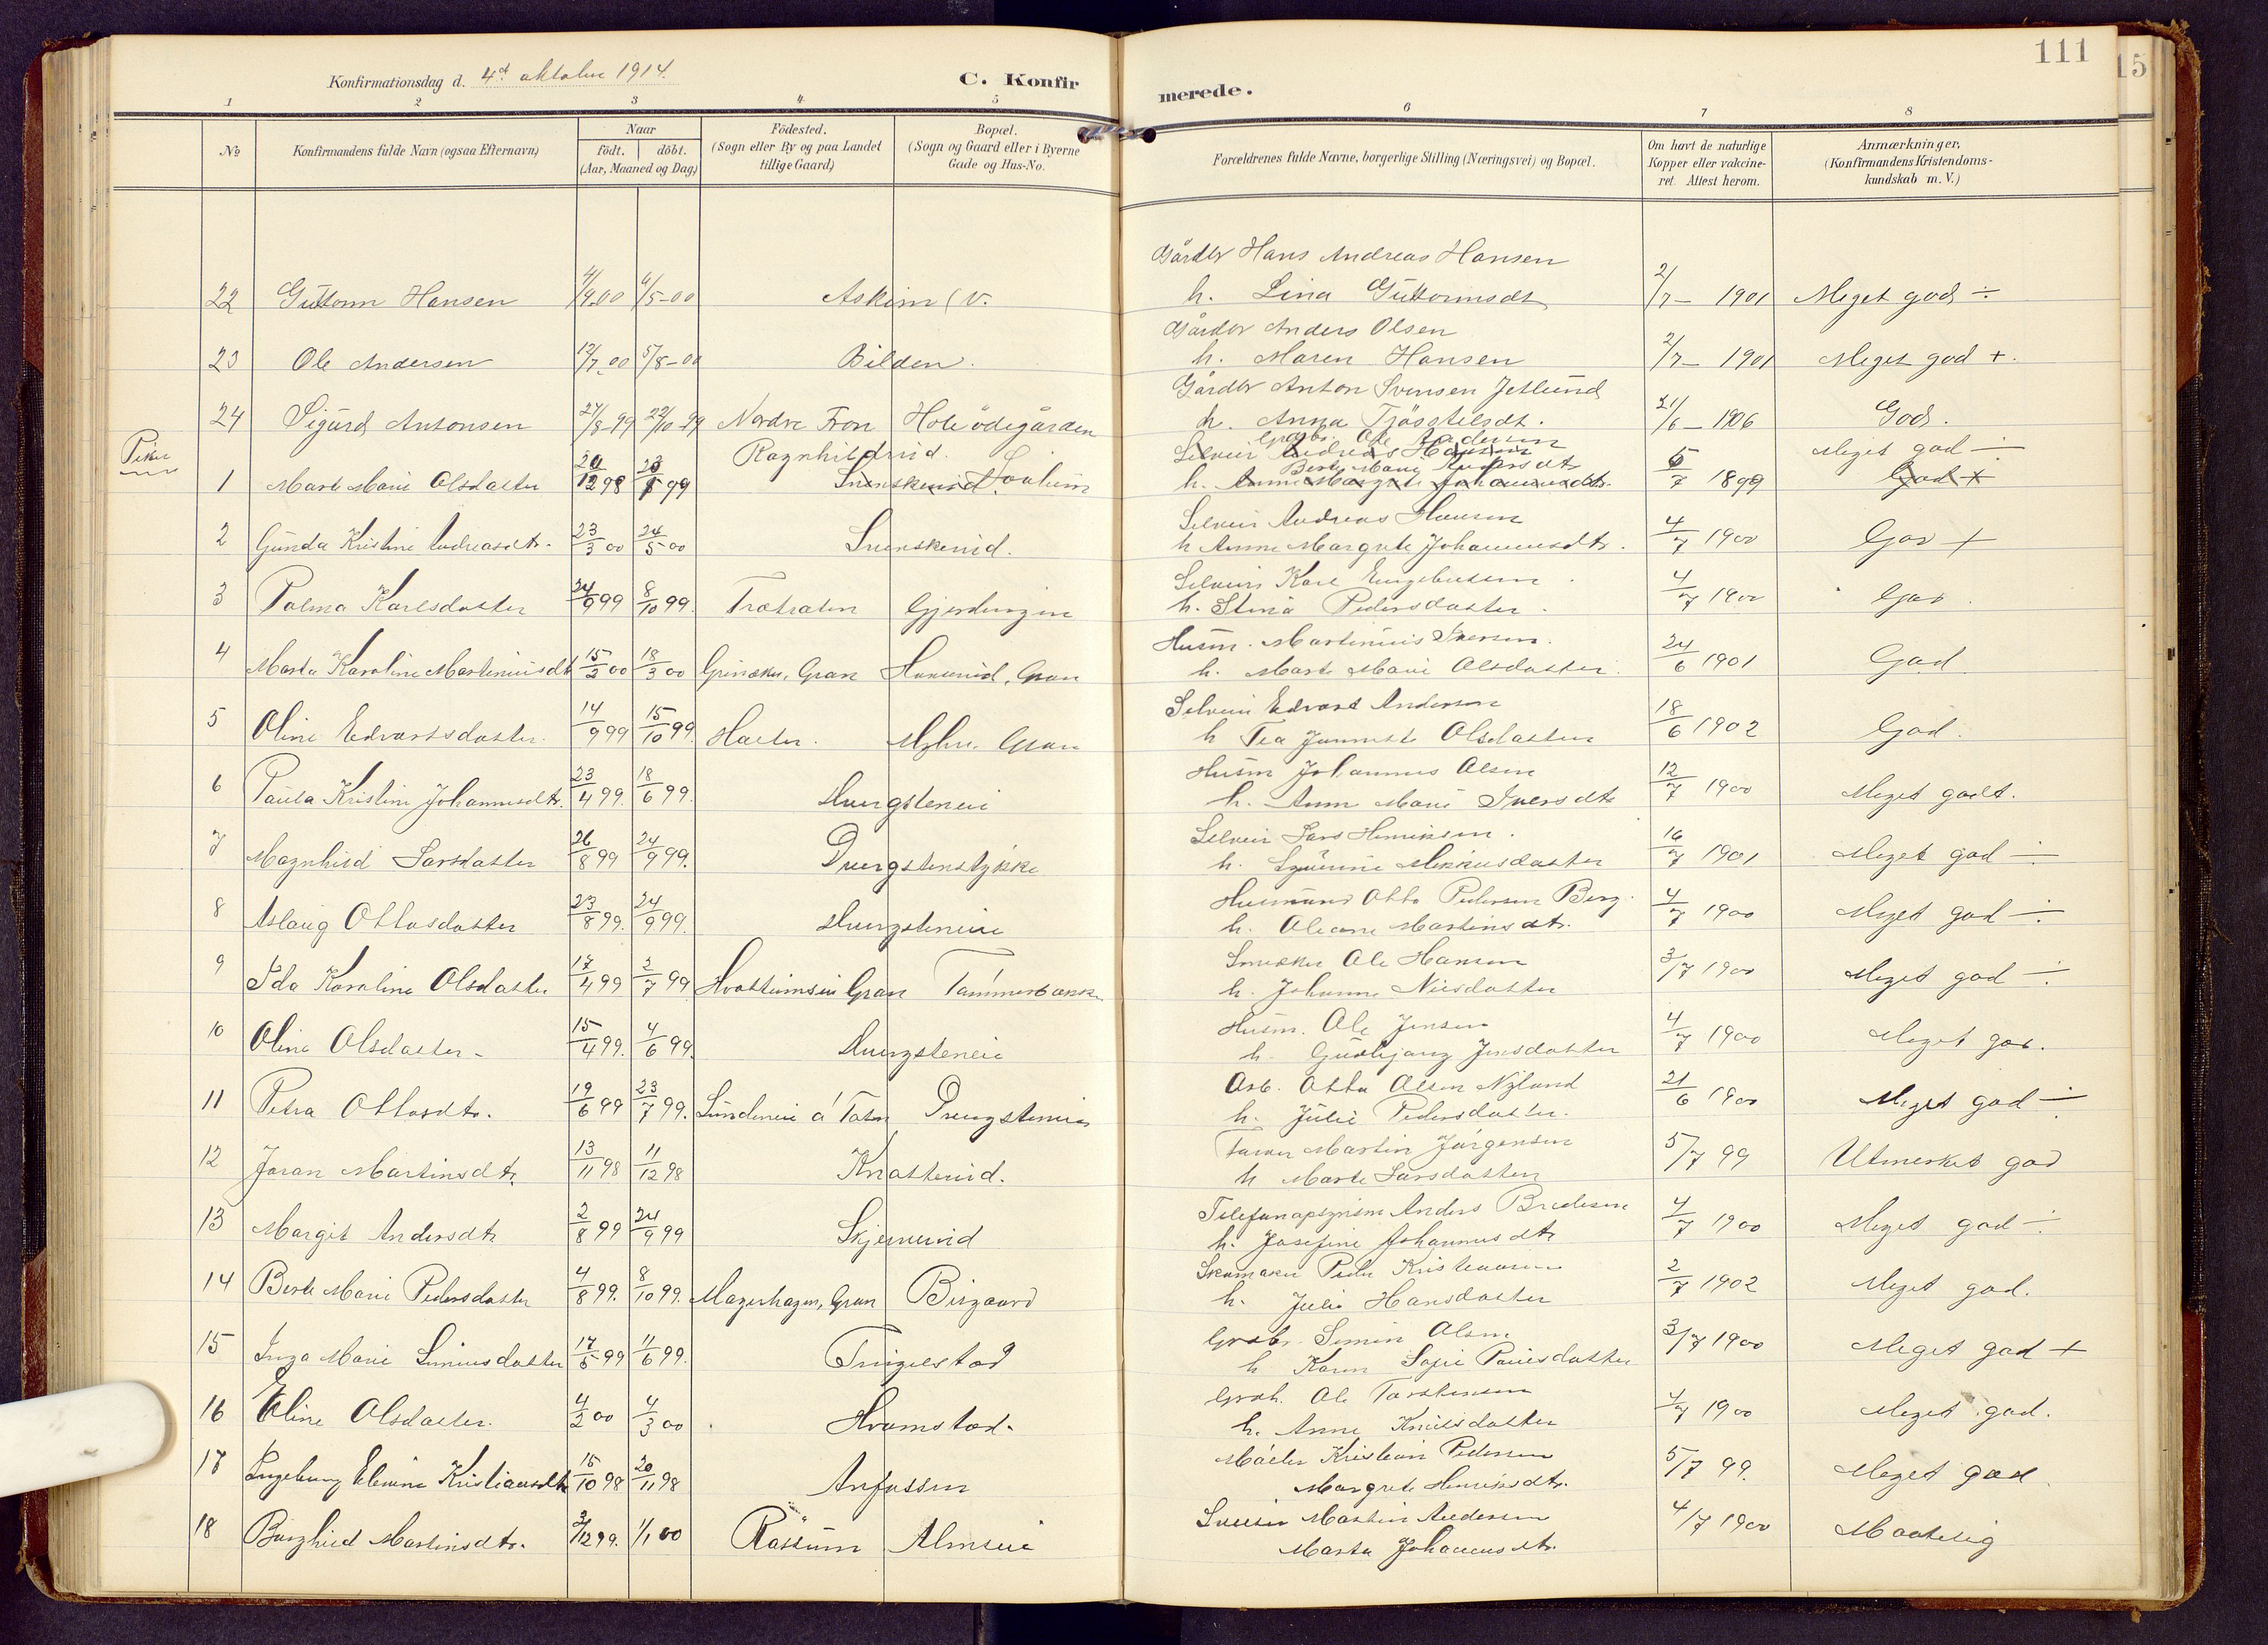 111
15
Konfirmationsdag d. 4de oktober 1914.
C. Konfirmerede.
1 2 3 4 5 6 7 8
No
Konfirmandens fulde Navn (ogsaa Efternavn)
Naar
födt. döbt.
(Aar, Maaned og Dag)
Födested.
(Sogn eller By og paa Landet
tillige Gaard)
Bopæl.
(Sogn og Gaard eller i Byerne
Gade og Hus-No.
Forældrenes fulde Navne, borgerlige Stilling (Næringsvei) og Bopæl.
Om havt de naturlige
Kopper eller vakcine-
ret. Attest herom.
Anmærkninger.
(Konfirmandens Kristendoms-
kundskab m. V.)
Gårdbr Hans Andreas Hansen
22 Guttorm Hansen 4/4 00 6/5-00 Askim (V. h. Lina Guttormsdt 2/7- 1901 Meget god ÷
Gårdbr Anders Olsen
23 Ole Andersen 12/7 00 5/8-00 Bilden. h. Maren Hansen 2/7- 1901 Meget god +.
Gårdbr Anton Svensen Jetlund
24 Sigurd Antonsen 27/8-99 22/10-99 Nordre Fron Hole ödegården h. Anna 21/6- 1906 God.
Piker
Ragnhildrud. Grdbr. Ole Andersen Meget god ÷
Selveier Andreas Hansen
Berte Marie Andersdt
1 Marte Marie Olsdatter 20/12 98 23/4 99 Svenskerud. h. Anne Margrete Johannesdtr. 5/7 1899 God +
Selveier Andreas Hansen
2 Gunda Kristine Andreasdtr. 23/3 00 24/5 00 Svenskerud. h. Anne Margrete Johannesdtr. 4/7 1900 God +
Selveier Karl Engebretsen
3 Palma Karlsdatter 24/9 99 8/10 99. Gjerdingen h. Stina Pedersdatter. 4/7 1900 God.
Husm. Martinius Iversen.
4 Marta Karoline Martiniusdt 15/2 00 18/3 00 Grinaker, Gran Gran h. Marte Marie Olsdatter. 24/6 1901 God
Selveier Edvart Andersen
5 Oline Edvartsdatter. 14/9 99 15/10 99. Gran h Tea Jannette Olsdatter 18/6 1902 God.
Husm Johannes Olsen
6 Paula Kristine Johannesdtr. 23/4 99. 18/6 99. Dvergsteneie h. Anne Marie Iversdtr 12/7 1900 Meget godt.
Selveier Lars Henriksen.
7 Magnhild Larsdatter 26/8 99 24/9 99. Dvergstenstykke h. 16/7 1901 Meget god ÷
Husmand Otto Pedersen Berg.
8 Aslaug Ottosdatter 23/8 99. 24/9 99. Dvergsteneie h. Oleane Martinsdtr. 4/7 1900 Meget god ÷
Snekker Ole Hansen
9 Ida Karoline Olsdatter 17/4 99 2/7 99 Gran h. Johanne Nilsdatter 3/7 1900 Meget god ÷
Husm. Ole Jensen
10 Oline Olsdatter. 15/4 99. 4/6 99. Dvergsteneie h. Gudbjørg Jensdatter 4/7 1900 Meget god.
Arb. Otto Olsen Nylund
11 Petra Ottosdtr. 19/6 99 23/7 99. Dvergsteneie h. Julie Pedersdatter. 21/6 1900 Meget god ÷
Martin Jörgensen
12 Joran Martinsdtr. 13/11 98 11/12 98 Knatterud. h Marte Larsdatter 5/7 99 Utmerket god
Telefonopsynsm Anders Bredesen
13 Margit Andersdtr 2/8 99 24/9 99 Skjerverud h. Josefine Johannesdtr 4/7 1900 Meget god ÷
Skomaker Peder Kristiansen
14 Berte Marie Pedersdatter 4/8 99. 8/10 99. Magerhagen, Gran Bisgaard h. Julie Hansdatter 2/7 1902 Meget god.
Grdbr. Simen Olsen
15 Inga Marie Simensdatter 17/5 99 11/6 99. Tingelstad h Karen Sofie Paulsdatter 3/7 1900 Meget god +
Grdb. Ole Torstensen
16 Eline Olsdatter. 4/2 00 4/3 00 Hvamstad. h. Anne Knutsdatter 4/7 1900 Meget god.
Maler Kristian Pedersen
17 Ingeborg Elevine Kristiansdtr 15/10 98 20/11 98 Anfossen Margrete Henriksdtr. 5/7 99. Meget god
Martin Andersen
18 Borghild Martinsdtr. 3/12 99. 1/1 00 Rossum Almseie Marta Johannesdtr. 4/7 1900 Maatelig